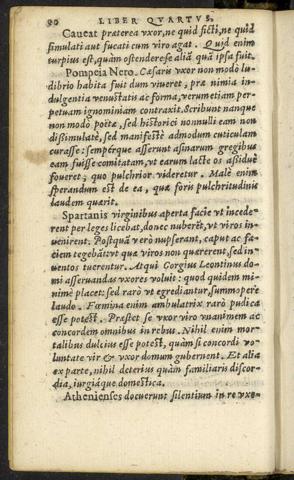 90 LIBER QVARTVS.
Caueat præterea vxor, ne quid ficti, ne quid
simulati aut fucati cum viro agat. Quid enim
turpius est, quàm ostendere se aliā quā ipsa fuit.
Pompeia Nero. Cæsaris vxor non modò lu-
dibrio habita fuit dum viueret, præ nimia in-
dulgentia venustatis ac forma, verumetiam per-
petuam ignominiam contraxit. Scribunt nanque
non modò poëtæ, sed historici nonnulli eam non
dissimulātē, sed manifestè admodum cuticulam
curasse: semperque asserunt asinarum gregibus
eam fuisse comitatam, vt earum lacte os assiduè
foueret, quo pulchrior videretur. Malè enim
sperandum est de ea, quæ foris pulchritudinis
laudem quærit.
Spartanis virginibus aperta facie vt incede-
rent per leges licebat, donec nuberēt, vt viros in-
uenirent. Postquā verò nupserant, caput ac fa-
ciem tegebāt: vt quæ viros non quererent, sed in-
uentos tuerentur. Atqui Gorgius Leontinus do-
mi asseruandas vxores voluit: quod quidem mi-
nimè placet: sed rarò vt egrediantur, summopere
laudo. Fœmina enim ambulatrix rarò pudica
esse potest. Præstet se vxor viro vnanimem ac
concordem omnibus in rebus. Nihil enim mor-
talibus dulcius esse potest, quàm si concordi vo-
luntate vir & vxor domum gubernent. Et alia
ex parte, nihil deterius quàm familiaris discor-
dia, iurgiáque domestica.
Athenienses docuerunt silentium in re vxo-